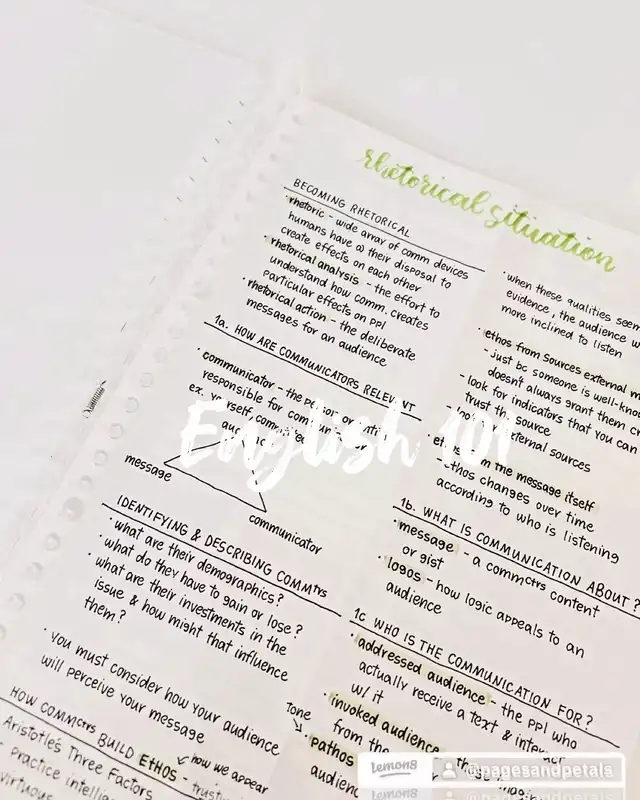 rhetorical situation
BECOMING RHETORICAL
• rhetoric - wide array of comm devices
humans have @ their disposal to
create effects on each other
• rhetorical analysis - the effort to
understand how comm. creates
particular effects on ppl
• rhetorical action - the deliberate
messages for an audience
1a. HOW ARE COMMUNICATORS RELEVANT
• communicator - the
responsible for
ex. yourself,
message
communicator
IDENTIFYING & DESCRIBING COMMTRS
• what are their demographics?
• what do they have to gain or lose?
• what are their investments in the
issue & how might that influence
them?
• you must consider how your audience
will perceive your message
HOW COMMCTRS BUILD ETHOS - trust
how we appear
Aristotle's Three Factors
- practice intellig
virtuous
• when these qualities seem
evidence, the audience w
more inclined to listen
• ethos from sources external
- just bc someone is well-know
doesn't always grant them cr
- look for indicators that you can
trust the source
external sources
• from the message itself
- ethos changes over time
according to who is listening
1b. WHAT IS COMMUNICATION ABOUT?
• message - a commctrs content
or gist
• logos - how logic appeals to an
audience
1c WHO IS THE COMMUNICATION FOR?
• addressed audience - the ppl who
actually receive a text &
w/ it
• invoked audience
from the
Tone
• pathos
audienc
English 101
Lemon8
@pagesandpetals